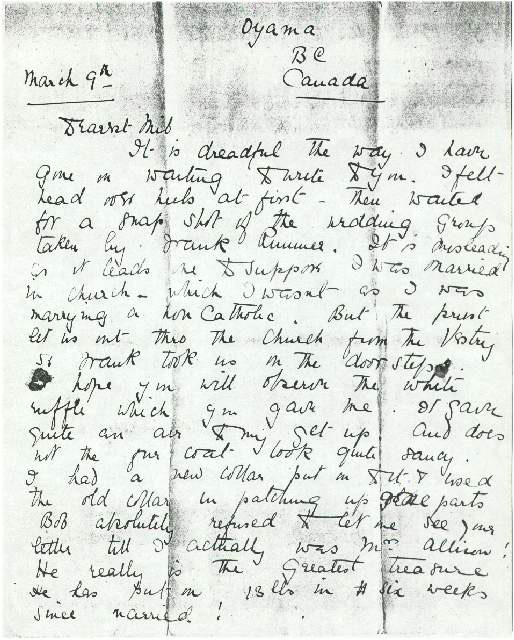 Oyama
BC
March 9th
Canada
Dearest Mib
It is dreadful the way I have
gone on waiting to write to you. I felt
head over heels at first - then waited
for a snap shot of the wedding group
taken by Frank Rimmer. It is misleading
as it leads one to suppose I was married
in church - which I wasnt as I was
marrying a non Catholic. But the priest
let us out thro the church from the Vestry
so Frank took us on the door steps.
I hope you will observe the white
ruffle which you gave me. It gave
quite an air to my get up and does
not the fur coat look quite saucy.
I had a new collar put on to it & used
the old collar in patching up parts
Bob absolutely refused to let me see your
letter till I actually was Mrs Allison!
He really is the Greatest treasure
He has put on 13 lbs in six weeks
since married!